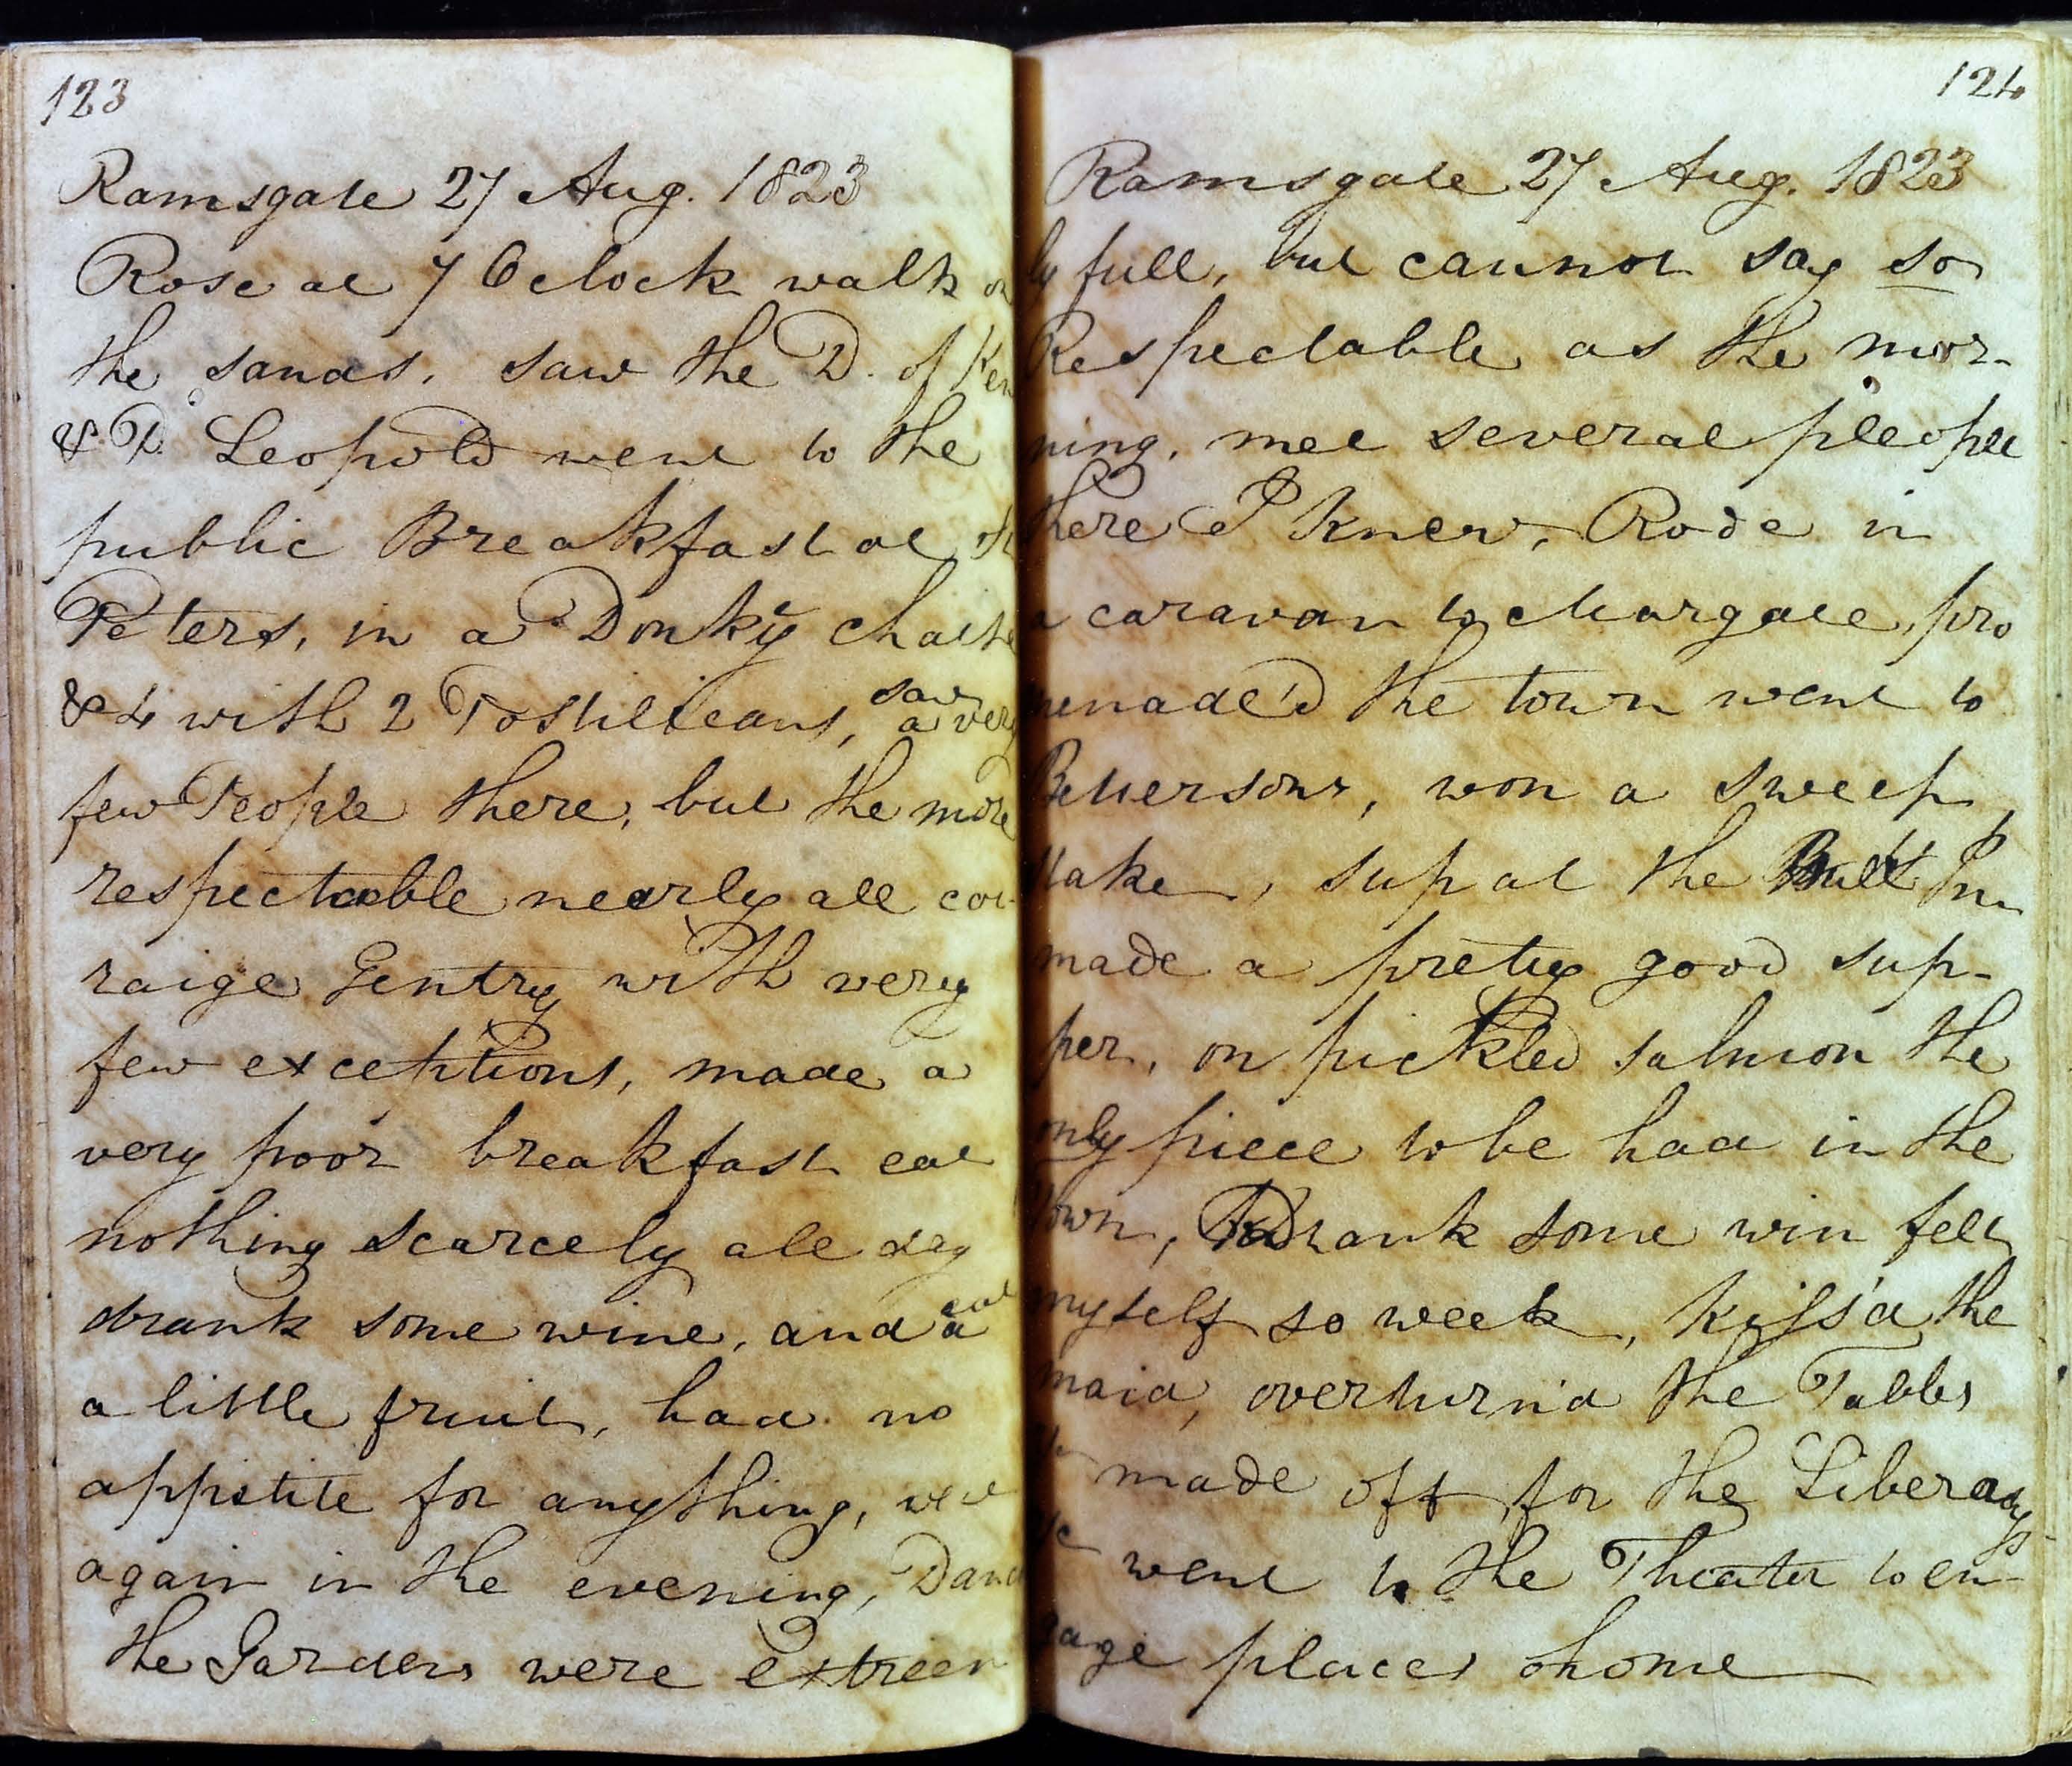 123
Ramsgate 27 Aug. 1823
Rose at 7 O clock walk on
the sands, saw the D. of Ken
& P. Leopold went to the
public Breakfast at St
Peters, in a Donky chaise
& 4 with 2 Postilleans, saw a very
few People there, but the more
respectable nearly all car-
raige Gentry with very
few exceptions, made a
very poor breakfast eat
nothing scarcely all day
drank some wine, and eat
a little fruit, had no
appetite for anything, went
again in the evening, Danc
the Gardens were extreem
124
Ramsgate 27 Aug. 1823
ly full, but cannot say so
Respectable as the mor-
ning, met several pleople
there I knew, Rode in
a caravan to Margate, pro
menade'd the town went to
Bettersons, won a sweep
stake, sup at the Bull Inn
made a pretty good sup-
per, on pickled salmon the
only piece to be had in the
Town, Drank some win felt
myself so week, kiss'd the
maid, overturn'd the Tables
& made off, for the Liberary
went to the Theater to en-
gage places home